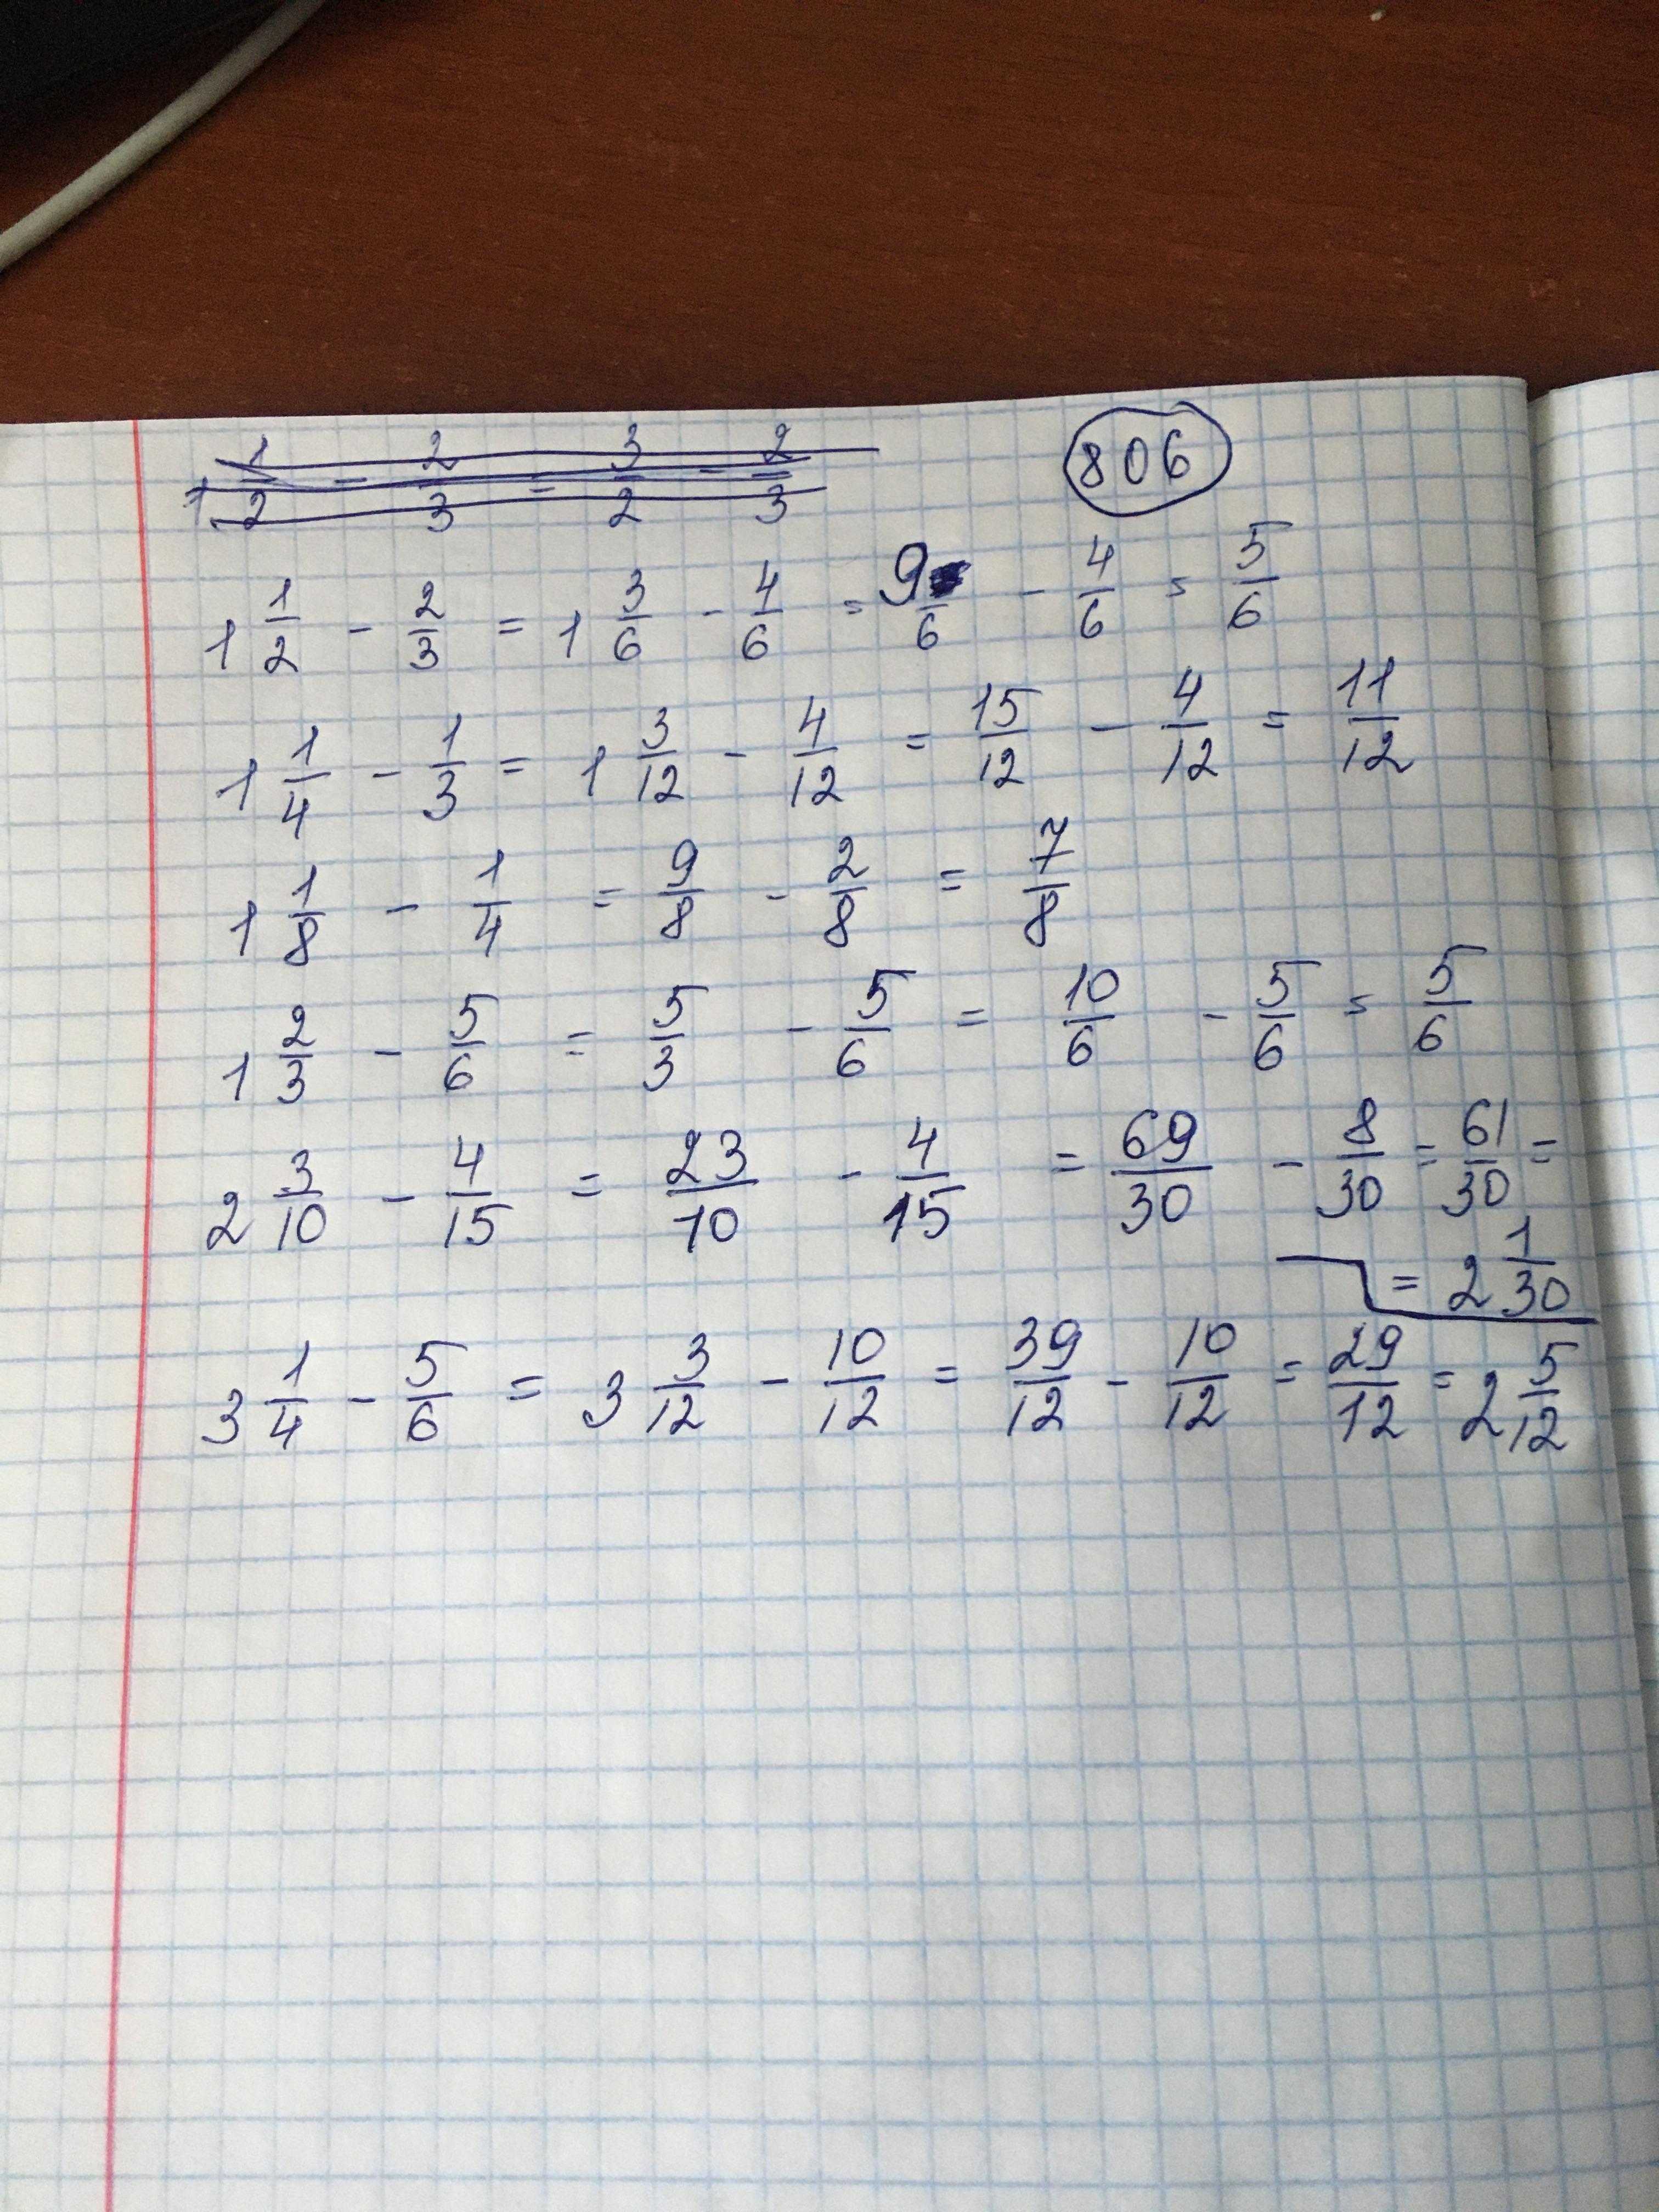 1 1/2 - 2/3 = 3/2 - 2/3
806
1 1/2 - 2/3 = 1 3/6 - 4/6 = 9/6 - 4/6 = 5/6
1 1/4 - 1/3 = 1 3/12 - 4/12 = 15/12 - 4/12 = 11/12
1 1/8 - 1/4 = 9/8 - 2/8 = 7/8
1 2/3 - 5/6 = 5/3 - 5/6 = 10/6 - 5/6 = 5/6
2 3/10 - 4/15 = 23/10 - 4/15 = 69/30 - 8/30 = 61/30 =
= 2 1/30
3 1/4 - 5/6 = 3 3/12 - 10/12 = 39/12 - 10/12 = 29/12 = 2 5/12